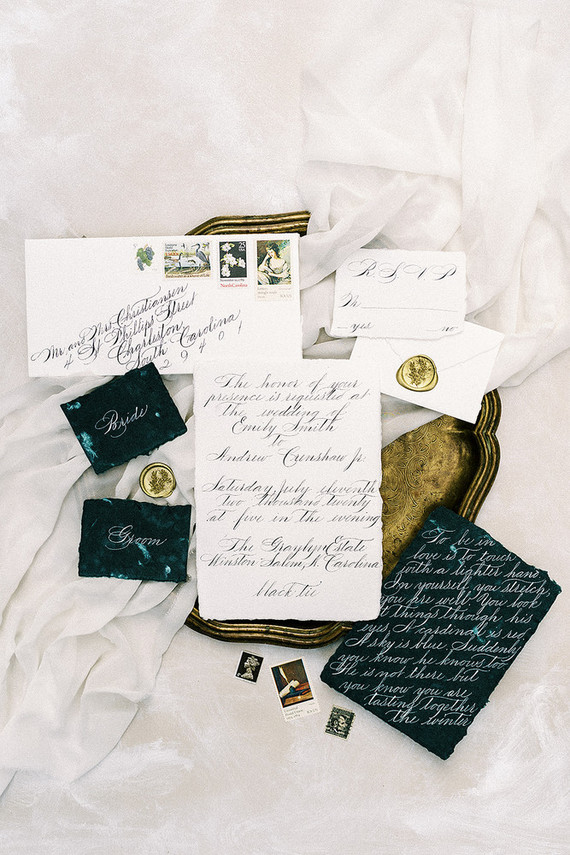 Mr. and Mrs. Christiansen
4 St Phillips Street
Charleston
South Carolina
29401
25
USA
North Carolina
RSVP
M
yes no
Bride
Groom
The honor of your
presence is requested at
the wedding of
Emily Smith
to
Andrew Crenshaw Jr.
Saturday, July eleventh
two thousand twenty
at five in the evening
The Graylyn Estate
Winston-Salem, N. Carolina
black tie
To be in
love is to touch
with a lighter hand.
In yourself you stretch,
you are well. You look
at things through his
eyes. A cardinal is red.
A sky is blue. Suddenly
you know he knows too.
He is not there but
you know you are
tasting together
the winter